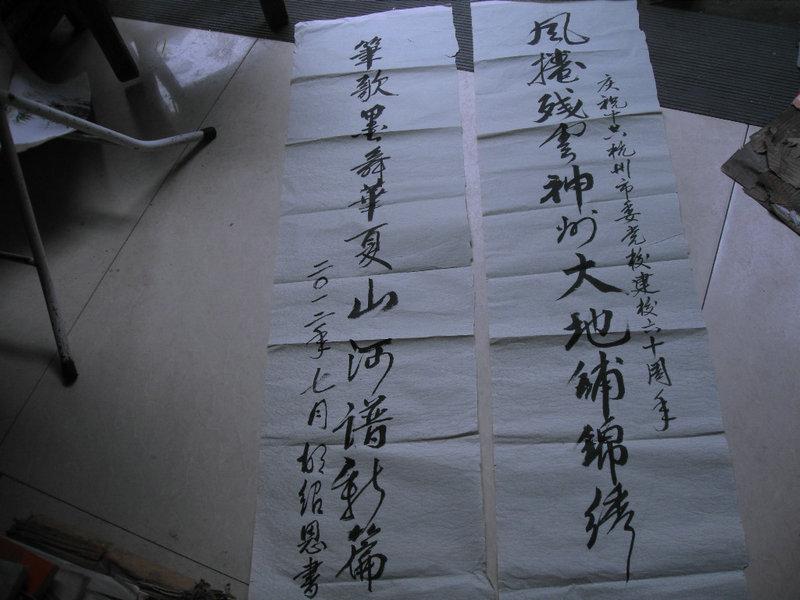 庆祝中共杭州市委党校建校六十周年
风捲残雲神州大地铺锦绣
筆歌墨舞華夏山河谱新篇
二〇一二年七月胡绍恩書